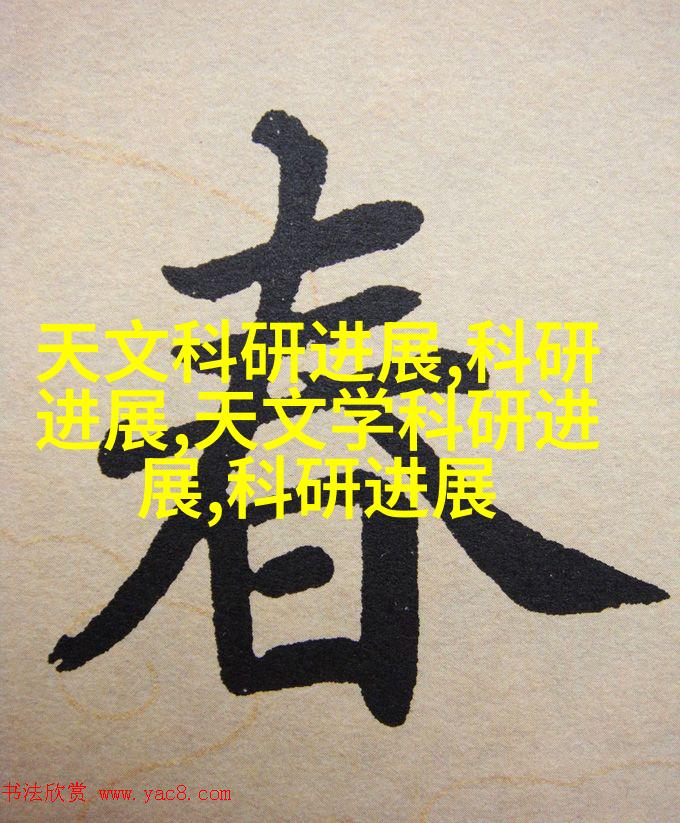 春
天文科研进展,科研
进展,天文学科研进
展,科研进展
书法欣赏 www.yac8.com